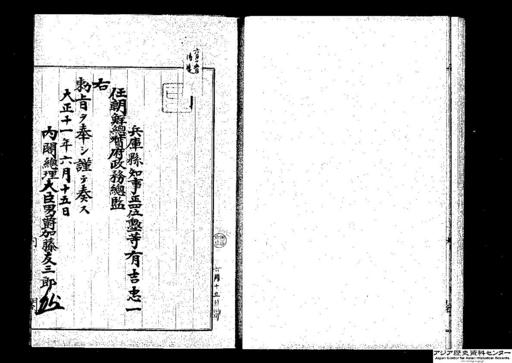 兵庫縣知事正四位勲二等有吉忠一
任朝鮮總督府政務總監
右
勅旨ヲ奉シ謹テ奏ス
大正十一年六月十五日
内閣總理大臣男爵加藤友三郎
六月十五日
アジア歴史資料センター
Japan Center for Asian Historical Records